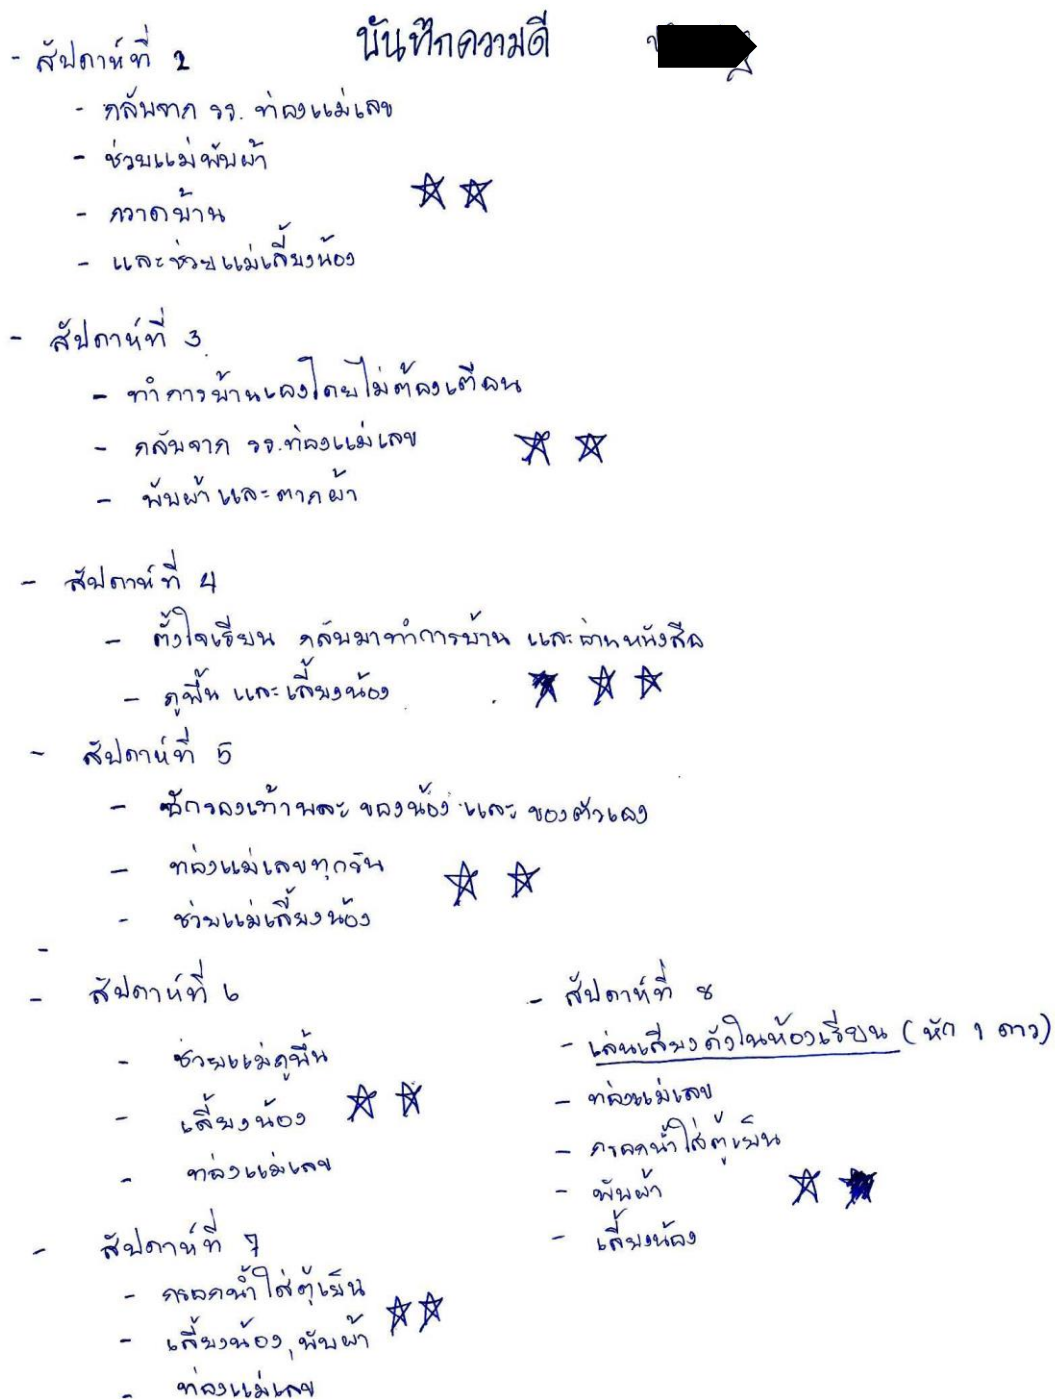 บันทึกความดี
- สัปดาห์ที่ 2
- กลับจาก รร. ท่องแม่เลข
- ช่วยแม่พับผ้า
- กวาดบ้าน
- และช่วยแม่เลี้ยงน้อง
- สัปดาห์ที่ 3
- ทำการบ้านเองโดยไม่ต้องเตือน
- กลับจาก รร.ท่องแม่เลข
- พับผ้า และตากผ้า
- สัปดาห์ที่ 4
- ตั้งใจเรียน กลับมาทำการบ้าน และอ่านหนังสือ
- ถูพื้น และเลี้ยงน้อง
- สัปดาห์ที่ 5
- ซักรองเท้าพละ ของน้อง และ ของตัวเอง
- ท่องแม่เลขทุกวัน
- ช่วยแม่เลี้ยงน้อง
-
- สัปดาห์ที่ ๖
- ช่วยแม่ถูพื้น
- เลี้ยงน้อง
- ท่องแม่เลข
- สัปดาห์ที่ 7
- กรอกน้ำใส่ตู้เย็น
- เลี้ยงน้อง, พับผ้า
- ท่องแม่เลข
- สัปดาห์ที่ 8
- เล่นเสียงดังในห้องเรียน (หัก 1 ดาว)
- ท่องแม่เลข
- กรอกน้ำใส่ตู้เย็น
- พับผ้า
- เลี้ยงน้อง